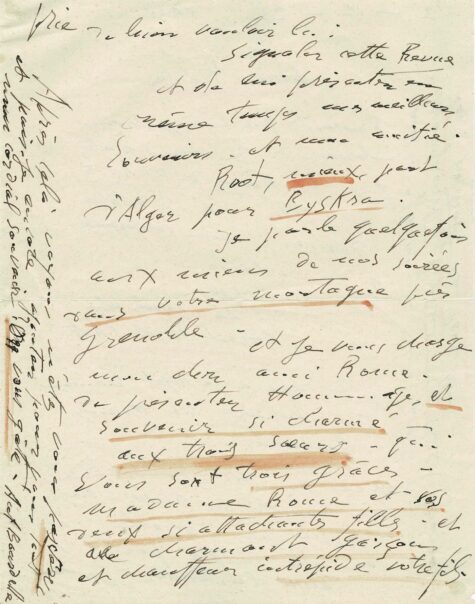 prie de bien vouloir lui
signaler cette Revue
et de lui présenter en
même temps mes meilleurs
souvenirs et mon amitié.
Root, mieux, part
d'Alger pour Byskra.
Je parle quelquefois
aux miens de nos soirées
sous votre montagne près
Grenoble - et je vous charge
mon cher ami Rome
de présenter Hommage, et
souvenir si charmé
aux trois soeurs - qui
vous sont trois grâces -
madame Rome et vos
deux si attachantes filles - et
au charmant garçon
et chauffeur intrépide votre fils
Après cela voyons
et puis je
mon cordial souvenir